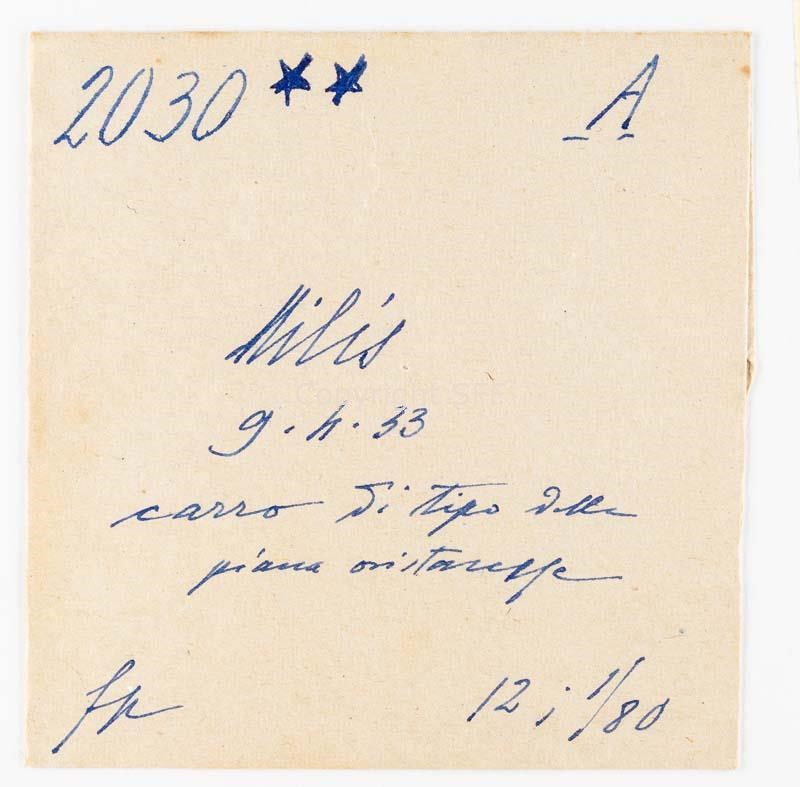 2030 ★★ A
Milis
9.4.33
carro di tipo della
piana oristanese
fp 12; 1/80